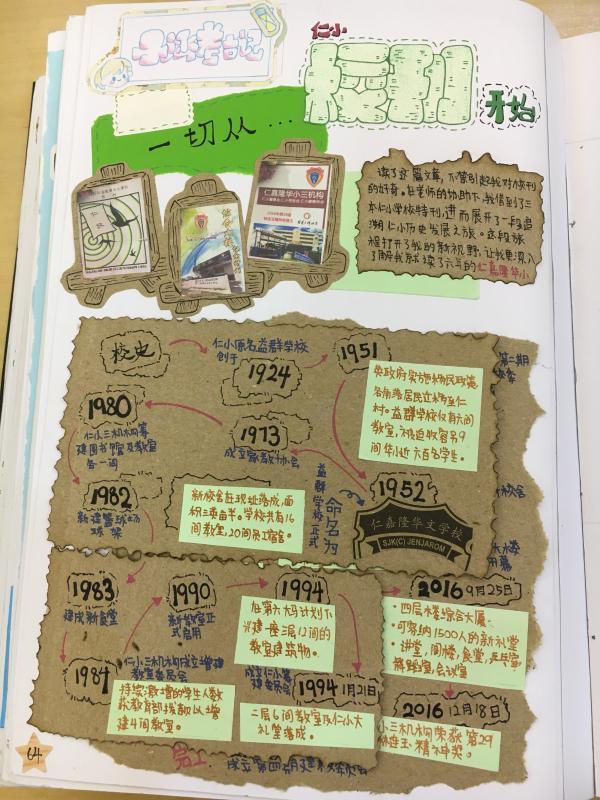 仁小
校刊
开始
一切从...
仁嘉隆华小三机构
读了这篇文章，不禁引起我对校刊
的好奇。在老师的协助下，我借到了三
本仁小学校特刊，进而展开了一段追
溯仁小历史发展之旅。这段旅
程打开了我的新视野，让我更深入
了解我就读了六年的仁嘉隆华小
校史
仁小原名益群学校
创于
1924
1951
英政府实施移民政策
各角落居民立移至仁
村。益群学校仅有六间
教室，被迫收容另9
间华小近六百名学生。
1980
仁小三机构筹
建图书馆及教室
各一间
1973
成立家教协会
1952
益群学校正式
命名为
仁嘉隆华文学校
SJK(C) JENJAROM
新校舍在现址落成，面
积三英亩半。学校共有16
间教室，20间员工宿舍。
1982
新建篮球场
球架
1983
建成新食堂
1990
新教室正
式启用
1994
在第六大马计划下
兴建一座三层12间的
教室建筑物。
1984
仁小三机构成立增建
教室委员会
持续激增的学生人数
获教育部拨款以增
建4间教室。
成立仁小筹
建委员会
1994 1月21日
二层6间教室及仁小大
礼堂落成。
2016 9月25日
·四层楼综合大厦
·可容纳1500人的新礼堂
·讲堂，阁楼，食堂，乒乓室
舞蹈室，会议室
2016 12月18日
小三机构荣获第29
林连玉精神奖。
第二期
64